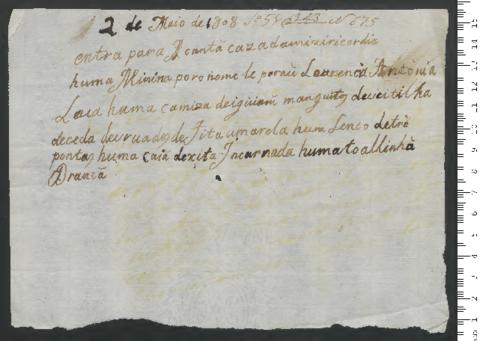 2 de Maio de 1808 N 675
entra para A cantà caza da miziricordia
huma Minina por o nome le poraũ Laurencia Antonia
Leva huma camiza de manguitos de veitilha
de ceda fita amarela hum Lenco de trẽ
pontas huma caia de xita Incarnada huma toallinhã
Brancã